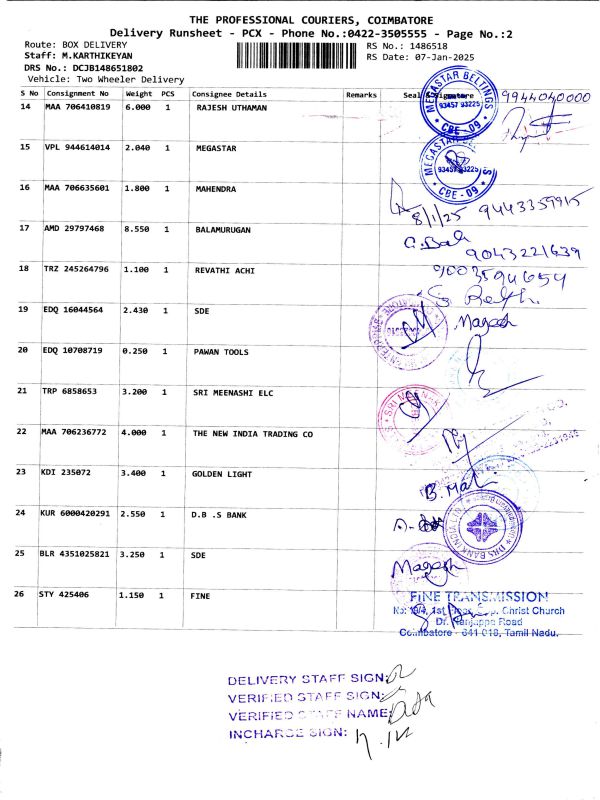 THE PROFESSIONAL COURIERS, COIMBATORE
Delivery Runsheet - PCX - Phone No.:0422-3505555 - Page No.:2
Route: BOX DELIVERY
RS No.: 1486518
Staff: M.KARTHIKEYAN
RS Date: 07-Jan-2025
DRS No.: DCJB148651802
Vehicle: Two Wheeler Delivery
S No Consignment No Weight PCS Consignee Details Remarks Seal Signature
14 MAA 706410819 6.000 1 RAJESH UTHAMAN
MEGASTAR BELTINGS
93457 93225
CBE - 09
9944040000
15 VPL 944614014 2.040 1 MEGASTAR
MEGASTAR
93457 93225
CBE - 09
16 MAA 706635601 1.800 1 MAHENDRA
8/1/25 9443359915
17 AMD 29797468 8.550 1 BALAMURUGAN
9043221639
18 TRZ 245264796 1.100 1 REVATHI ACHI
9003594654
19 EDQ 16044564 2.430 1 SDE
Magesh
20 EDQ 10708719 0.250 1 PAWAN TOOLS
21 TRP 6858653 3.200 1 SRI MEENASHI ELC
22 MAA 706236772 4.000 1 THE NEW INDIA TRADING CO
23 KDI 235072 3.400 1 GOLDEN LIGHT
24 KUR 6000420291 2.550 1 D.B .S BANK
DBS BANK INDIA
25 BLR 4351025821 3.250 1 SDE
Magesh
26 STY 425406 1.150 1 FINE
FINE TRANSMISSION
Christ Church
Dr. Nanjappa Road
Coimbatore - 641 018, Tamil Nadu.
DELIVERY STAFF SIGN:
VERIFIED STAFF SIGN:
VERIFIED STAFF NAME:
INCHARGE SIGN: